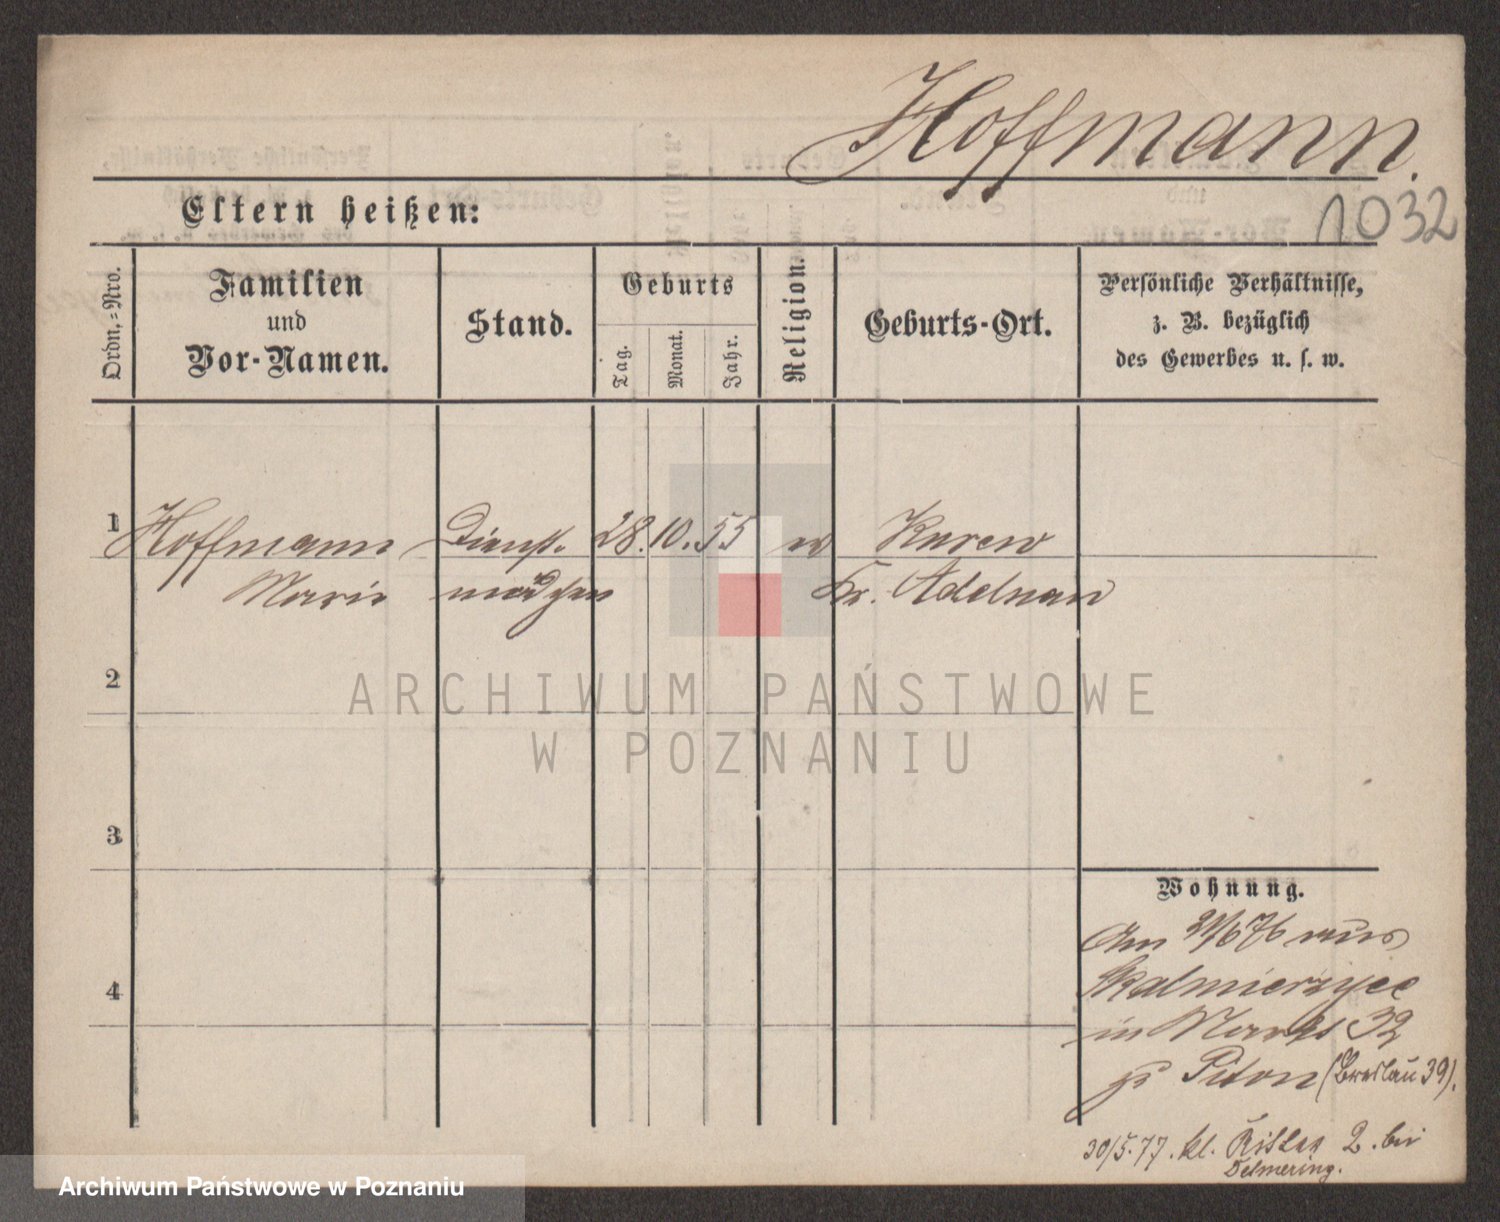 Hoffmann.
1032
Eltern heißen:
Ordn.-Nro.
Familien
und
Vor-Namen.
Stand.
Geburts
Tag.
Monat.
Jahr.
Religion.
Geburts-Ort.
Persönliche Verhältnisse,
z. B. bezüglich
des Gewerbes u. s. w.
1 Hoffmann Dienst- 28. 10. 55 Kurew
Marie mädchen Kr. Adelnau
2
3
4
Wohnung.
Am 21/6 76 aus
Skalmierzyce
in Markt 32
zu Piton (Breslau 39).
30/5.77. kl. Ritter 2. bei
Delmering.
ARCHIWUM PAŃSTWOWE
W POZNANIU
Archiwum Państwowe w Poznaniu